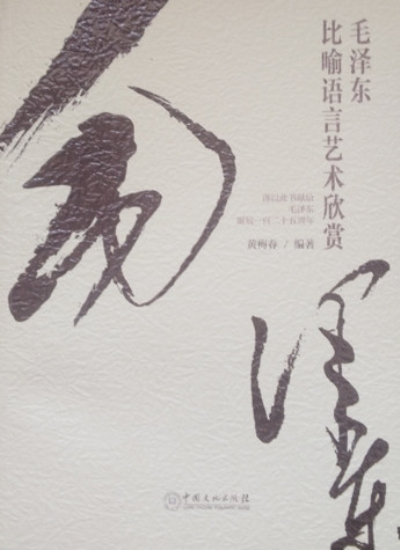 毛泽东
比喻语言艺术欣赏
谨以此书献给
毛泽东
诞辰一百二十五周年
黄梅春 / 编著
中国文化出版社